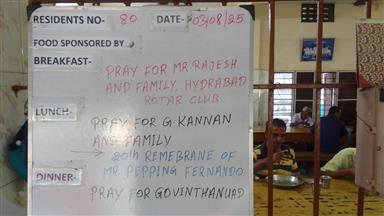 RESIDENTS NO- 80 DATE- 03/08/25
FOOD SPONSORED BY
BREAKFAST-
PRAY FOR MR. RAJESH
AND FAMILY, HYDRABAD
ROTAR CLUB
LUNCH-
PRAY FOR G. KANNAN
AND FAMILY
→ 20th REMEBRANE OF
MR. PEPPING FERNANDO
DINNER-
PRAY FOR GOVINTHANUAD